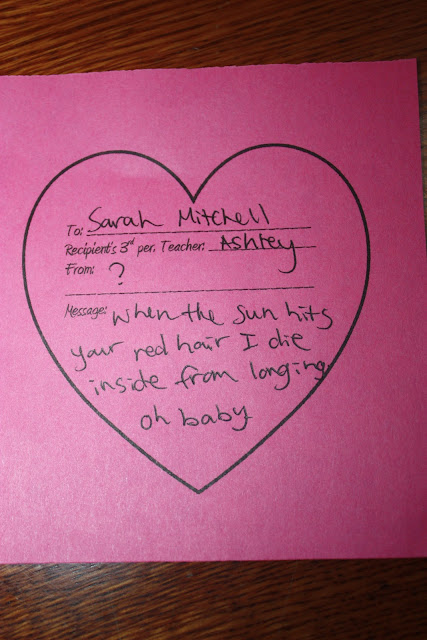 To: Sarah Mitchell
Recipient's 3rd per. Teacher: Ashtey
From: ?
Message: when the sun hits
your red hair I die
inside from longing
oh baby